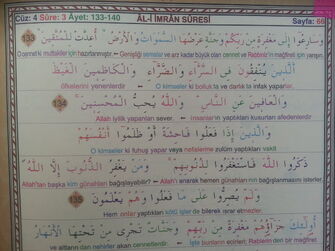 Cüz: 4 Sûre: 3 Âyet: 133-140 ÂL-İ İMRÂN SÛRESİ Sayfa: 66
وَسَارِعُوا إِلَىٰ مَغْفِرَةٍ مِنْ رَبِّكُمْ وَجَنَّةٍ عَرْضُهَا السَّمَٰوَاتُ وَالْأَرْضُ أُعِدَّتْ لِلْمُتَّقِينَ 133
O cennet ki muttakiler için hazırlanmıştır. Genişliği semalar ve arz kadar büyük olan cennet ve Rabbinizin mağfireti için yarışın.
الَّذِينَ يُنْفِقُونَ فِي السَّرَّاءِ وَالضَّرَّاءِ وَالْكَاظِمِينَ الْغَيْظَ
öfkelerini yenenlerdir O takvalılar ki bollukta ve darlıkta infak yaparlar,
وَالْعَافِينَ عَنِ النَّاسِ وَاللَّهُ يُحِبُّ الْمُحْسِنِينَ 134
Allah iyilik yapanları sever. insanların yaptıkları kusurları afedenlerdir
وَالَّذِينَ إِذَا فَعَلُوا فَاحِشَةً أَوْ ظَلَمُوا أَنْفُسَهُمْ
O takvalılar ki fuhuş yapar veya nefislerine zulüm yaptıkları vakit
ذَكَرُوا اللَّهَ فَاسْتَغْفَرُوا لِذُنُوبِهِمْ وَمَنْ يَغْفِرُ الذُّنُوبَ إِلَّا اللَّهُ
Allah'tan başka kim günahları bağışlayabilir? Allah'ı anarak hemen günahları için bağışlanmasını isterler.
وَلَمْ يُصِرُّوا عَلَىٰ مَا فَعَلُوا وَهُمْ يَعْلَمُونَ 135
Hem onlar yaptıkları kötü işler de bilerek ısrar etmezler.
أُولَٰئِكَ جَزَاؤُهُمْ مَغْفِرَةٌ مِنْ رَبِّهِمْ وَجَنَّاتٌ تَجْرِي مِنْ تَحْتِهَا الْأَنْهَارُ
ve altların dan nehirler akan cennetlerdir. İşte bunların ecirleri; Rablerin den bir mağfiret